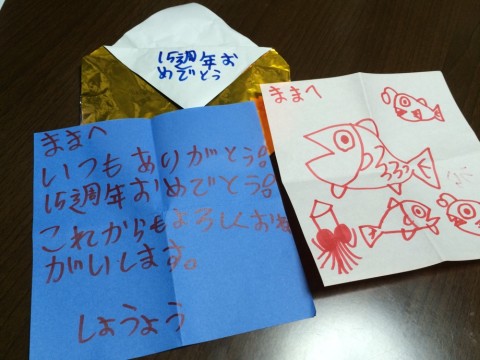 15周年お
めでとう
ままへ
いつもありがとう!
15周年おめでとう!
これからもよろしくおね
がいします。
しょうよう
ままへ